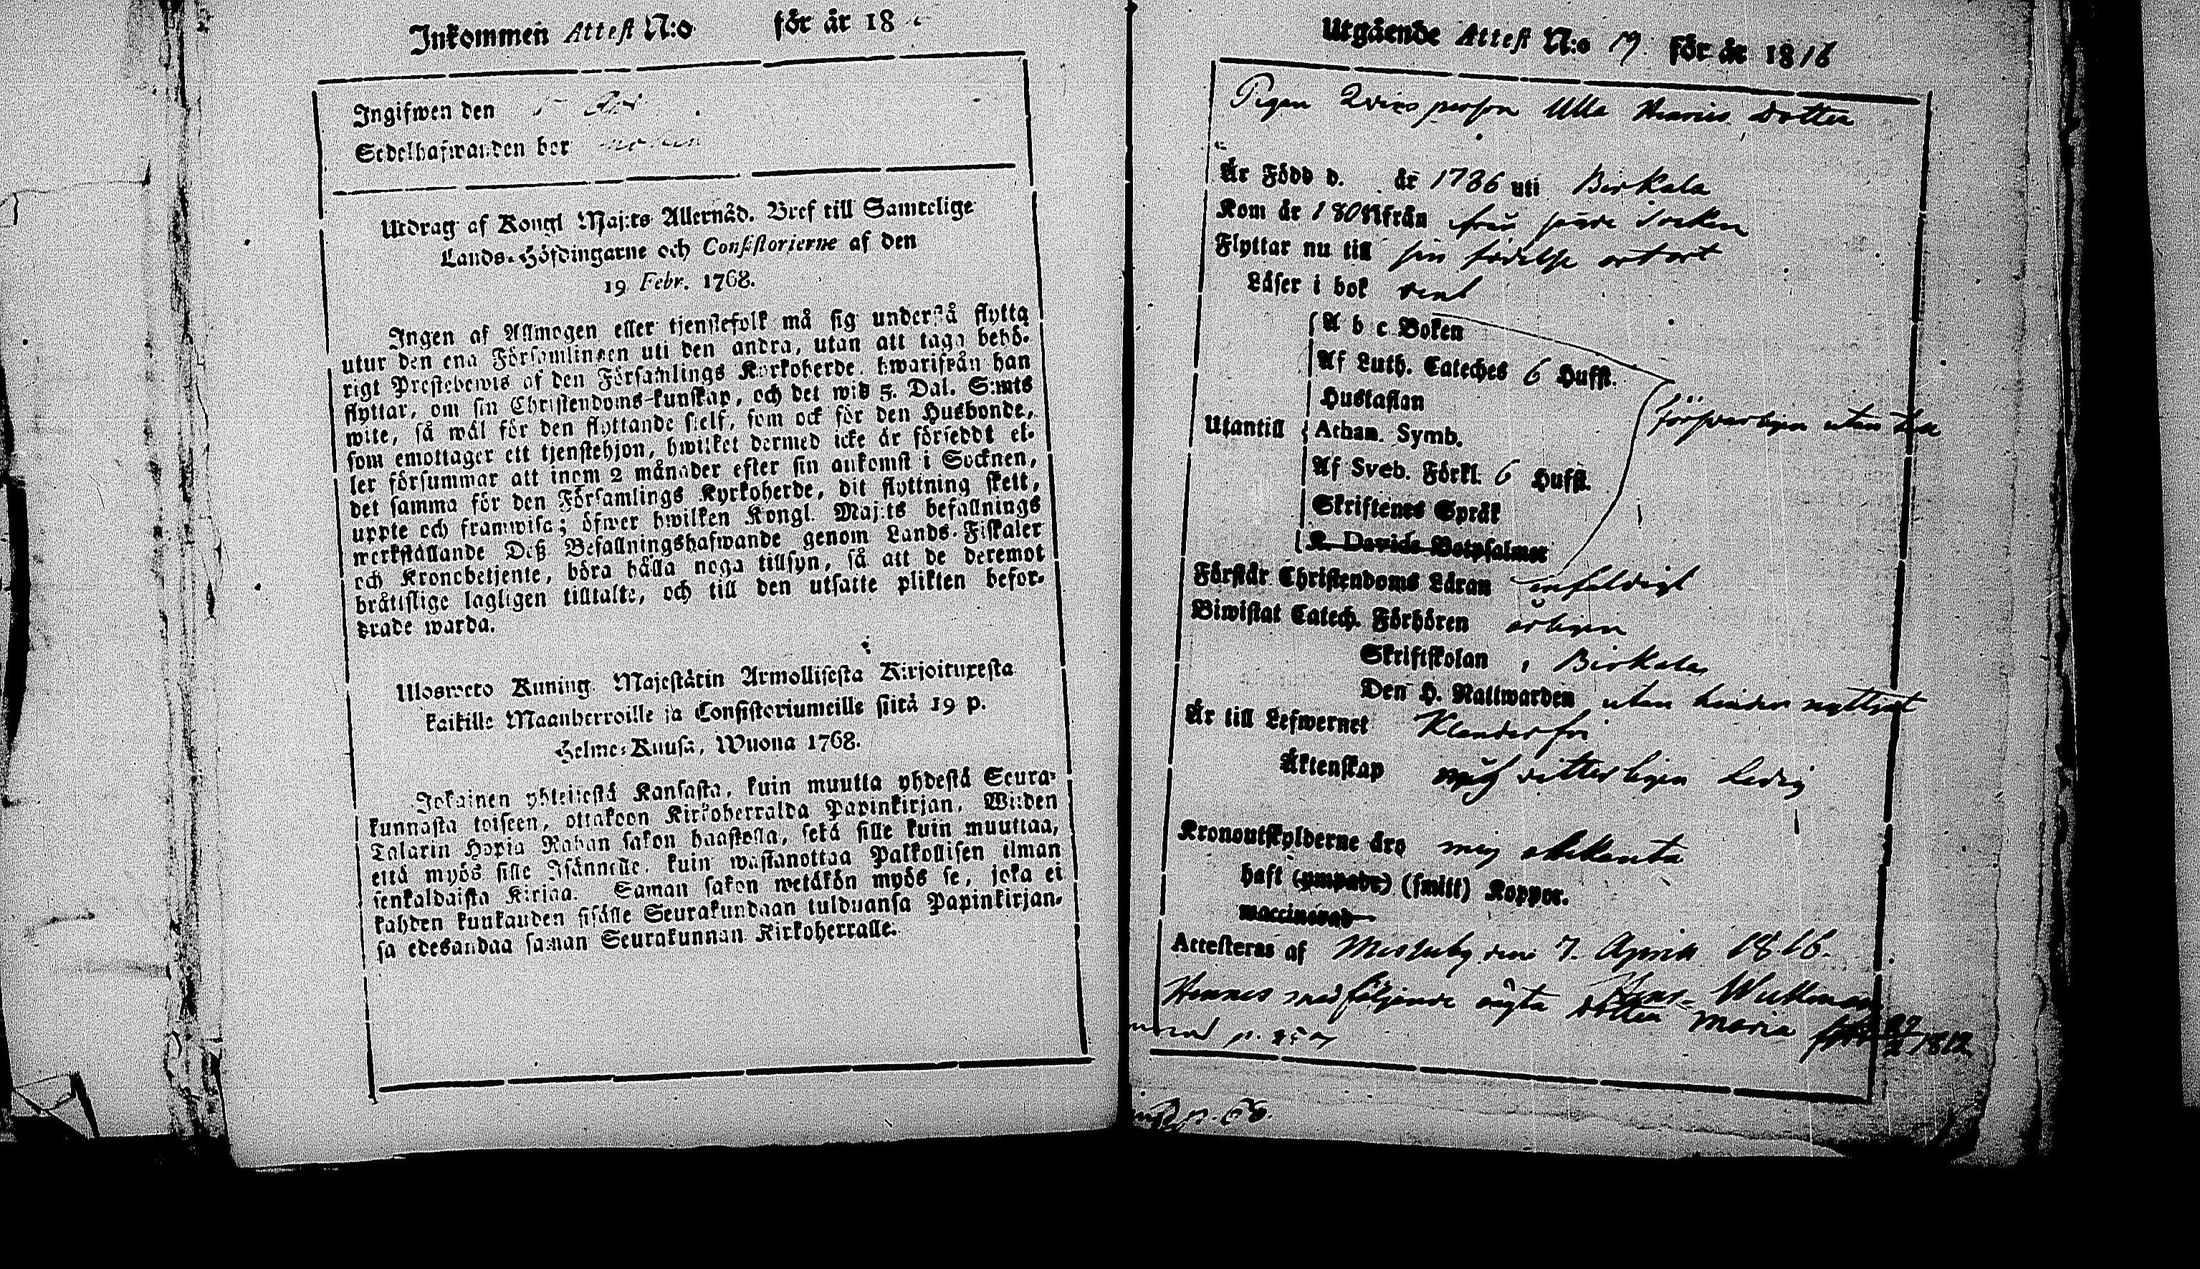 Inkommen Attest N:o för år 18
Ingifwen den
Sedelhafwanden bor
Utdrag af Kongl Maj:ts Allernåd. Bref till Samtelige
Lands-Höfdingarne och Consistorierne af den
19 Febr. 1768.
Ingen af Allmogen eller tjenstefolk må sig understå flytta
utur den ena Församlingen uti den andra, utan att taga behö-
rigt Prestebewis af den Församlings Kyrkoherde, hwarifrån han
flyttar, om sin Christendoms-kunskap, och det wid 5. Dal. S:mts
wite, så wäl för den flyttande sielf, som ock för den Husbonde,
som emottager ett tjenstehjon, hwilket dermed icke är försedt el-
ler försummar att inom 2 månader efter sin ankomst i Socknen,
det samma för den Församlings Kyrkoherde, dit flyttning skett,
uppte och framwisa; öfwer hwilken Kongl. Maj:ts befallnings
werkställande Deß Befallningshafwande genom Lands-Fiskaler
och Kronobetjente, böra hålla noga tillsyn, så att de deremot
bråttslige lagligen tilltalte, och till den utsatte plikten befor-
drade warda.
Uloswето Kuning. Majestätin Armollisesta Kirjoituxesta
kaikille Maanherroille ja Consistoriumeille siitä 19 p.
Helme-Kuusa, Wuona 1768.
Jokainen yhteisestä Kansasta, kuin muutta yhdestä Seura-
kunnasta toiseen, ottakoon Kirkoherralda Papinkirjan, Wiiden
Talarin Hopia Rahan sakon haastolla, sekä sille kuin muuttaa,
että myös sille Isännelle, kuin wastanottaa Palkollisen ilman
senkaldaista Kirjaa. Saman sakon wetäkön myös se, joka ei
kahden kuukauden sisälle Seurakundaan tulduansa Papinkirjan-
sa edesandaa saman Seurakunnan Kirkoherralle.
Utgående Attest N:o 19. för år 1816
Pigan Qvinsperson Ulla dotter
Är Född d. år 1786 uti Birkala
Kom år från socken
Flyttar nu till sin födelse ort
Läser i bok rent
A b c Boken
Af Luth. Cateches 6 Hufst.
Hustaflan
Utantill Athan. Symb.
Af Sveb. Förkl. 6 Hufst.
Skriftenes Språk
K. Davids Botpsalmer
försvarligen utan
Förstår Christendoms Läran enfaldigt
Biwistat Catech. Förhören årligen
Skriftskolan i Birkala
Den H. Nattwarden utan hinder nyttjat
Är till Lefwernet Klanderfri
Äktenskap ledig
Kronoutskylderne äro mig obekanta
haft (ympade) (smitt) Koppor.
waccinerad
Attesteras af Messuby den 7. April 1816.
Hennes medföljande oägta dotter Maria född 1812